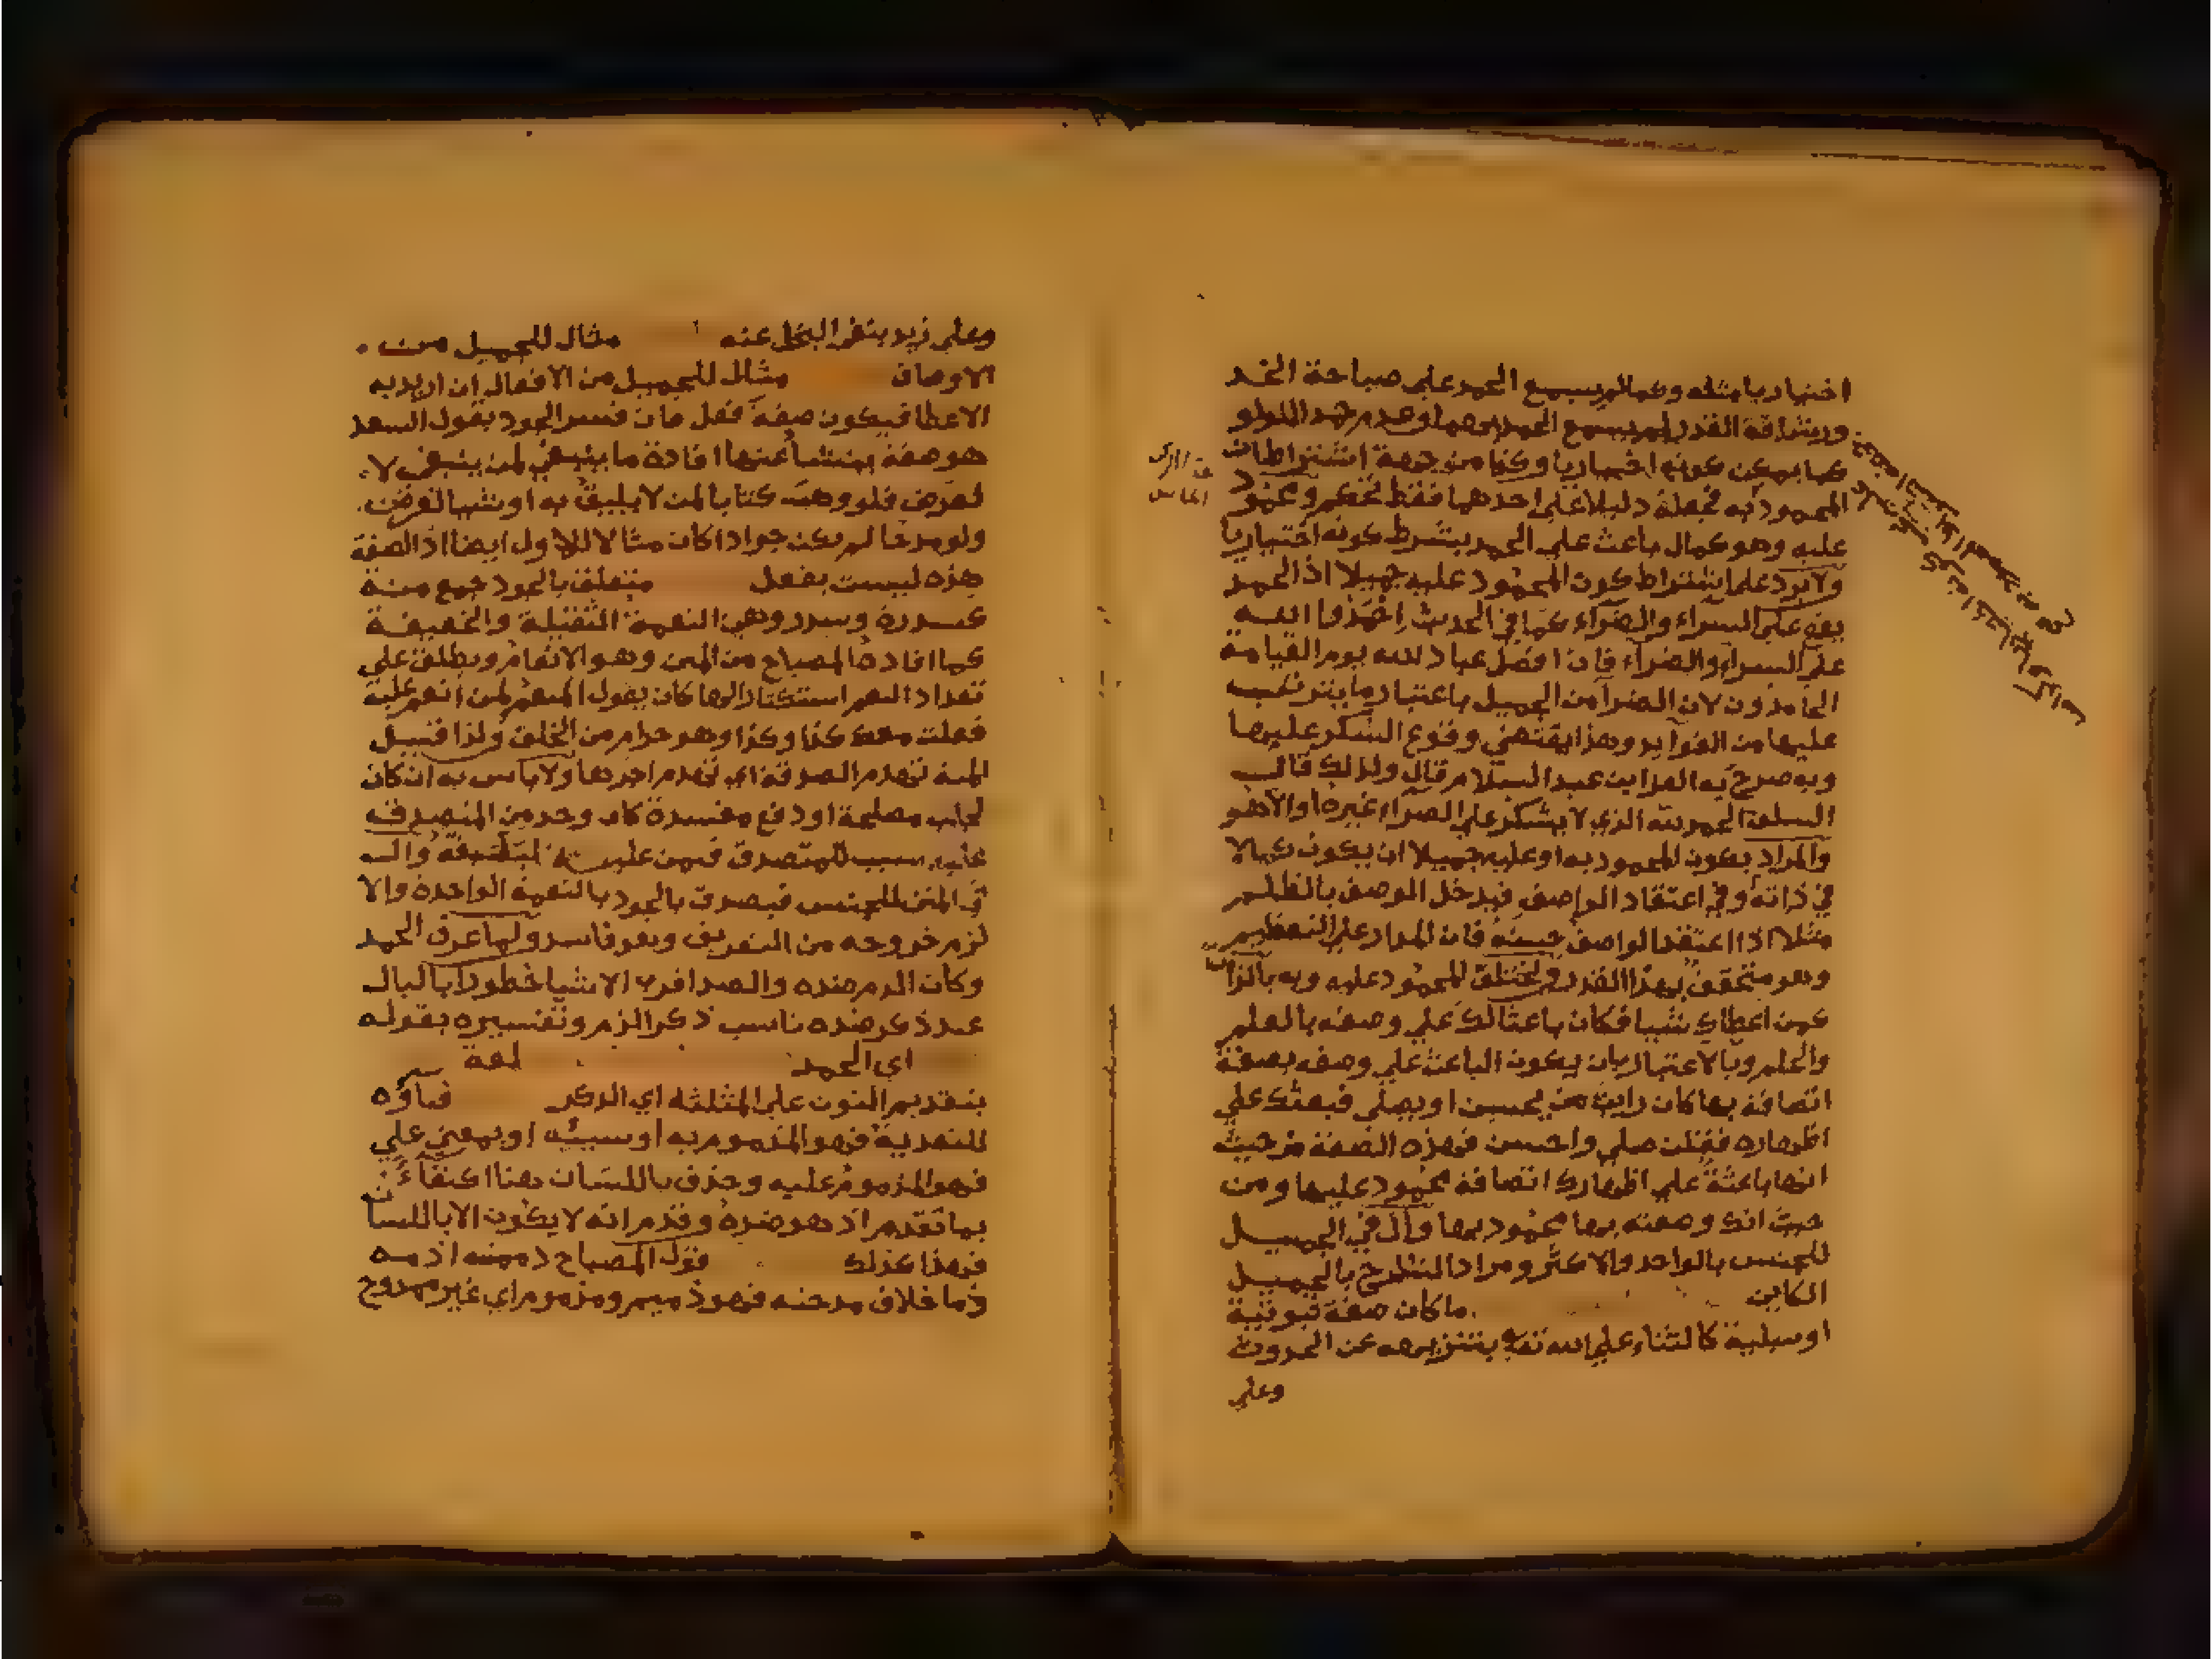 اختياريا مثله وكمالم يسمع الحمد علي صباحة الخد
ورشاقة القد لم يسمع الحمد بهما وعدم حمد اللولو
كما يمكن كونه اختياريا وكذا من جهة اشتراطات
المحمود به فجعله دليلا علي احدهما فقط تحكم ومحمود
عليه وهو كمال باعث علي الحمد بشرط كونه اختياريا
ولا يرد علي اشتراط كون المحمود عليه جميلا اذ الحمد
يقع علي السراء والضراء كما في الحديث احمدوا الله
علي السراء والضراء فان افضل عباد لله يوم القيامة
الحامدون لان الضرا من الجميل باعتبار ما يترتب
عليها من الفوايد وهذا يقتضي وقوع الشكر عليها
وبه صرح به العز ابن عبد السلام قال ولذلك قال
السلف الحمد لله الذي لا يشكر علي الضراء غيره اوالاهو
والمراد بكون المحمود به او عليه جميلا ان يكون كمالا
في ذاته او في اعتقاد الواصف فيدخل الوصف بالظلم
مثلا اذا اعتقد الواصف حسنه فان المدار علي التعظيم
وهو متحقق بهذا القدر ويختلق المحمود عليه وبه بالذات
كمن اعطاك شيا فكان باعثا لك علي وصفه بالعلم
والحلم وبالاعتبار بان يكون الباعث علي وصف بصفة
اتصافه بها كان رايت من يحسن او يصلي فبعثك علي
اظهاره فقلت صلي واحسن فهذه الصفة من حيث
انها باعثة علي اظهارك اتصافه محمود عليها ومن
حيث انك وصفته بها محمود بها وال في الجميل
للجنس بالواحد والاكثر ومراد الشارح بالجميل
الكاين ما كان صفة ثبوتية
او سلبية كالثناء علي الله تع بتنزيهه عن الحدوث
وعلي
وعلي زيد بنفي البخل عنه مثال للجميل من
الاوصاف مثال للجميل من الافعال ان اريد به
الاعطا فيكون صفة فعل فان فسر الجود بقول السعد
هو صفة ينشا عنها افادة ما ينبغي لمن ينبغي لا
لغرض فلو وهب كتابا لمن لا يليق به او شيا لغرض
ولو مدحا لم يكن جوادا كان مثالا للاول ايضا اذ الصفة
هذه ليست بفعل متعلق بالجود جمع منة
كسدرة وسدر وهي النعمة الثقيلة والخفيفة
كما افاده المصباح من المن وهو الانعام ويطلق علي
تعداد النعم استكثارا لها كان يقول المنعم لمن انعم عليه
فعلت معك كذا وكذا وهو حرام من الخلق ولذا قيل
المنة تهدم الصدقة اي تهدم اجرها ولا باس به ان كان
لجلب مصلحة او دفع مفسدة كان وجد من المتصدق
عليه سبب للمتصدق فمن عليه وال
في المنن للجنس فيصدق بالجود بالنعمة الواحدة والا
لزم خروجه من التعريف وهو فاسد ولما عرف الحمد
وكان الذم ضده والضد اقرب الاشيا خطورا بالبال
عند ذكر ضده ناسب ذكر الذم وتفسيره بقوله
اي الحمد لغة
بتقديم النون علي المثلثه اي الذكر فباؤه
للتعدية فهو المذموم به او سببيه او بمعني علي
فهو المذموم عليه وحذف باللسان هنا اكتفاء
بما تقدم اذ هو ضده وقدم انه لا يكون الا باللسان
فهذا كذلك قول المصباح ذممته اذمه
ذما خلاف مدحته فهو ذميم ومذموم اي غير ممدوح